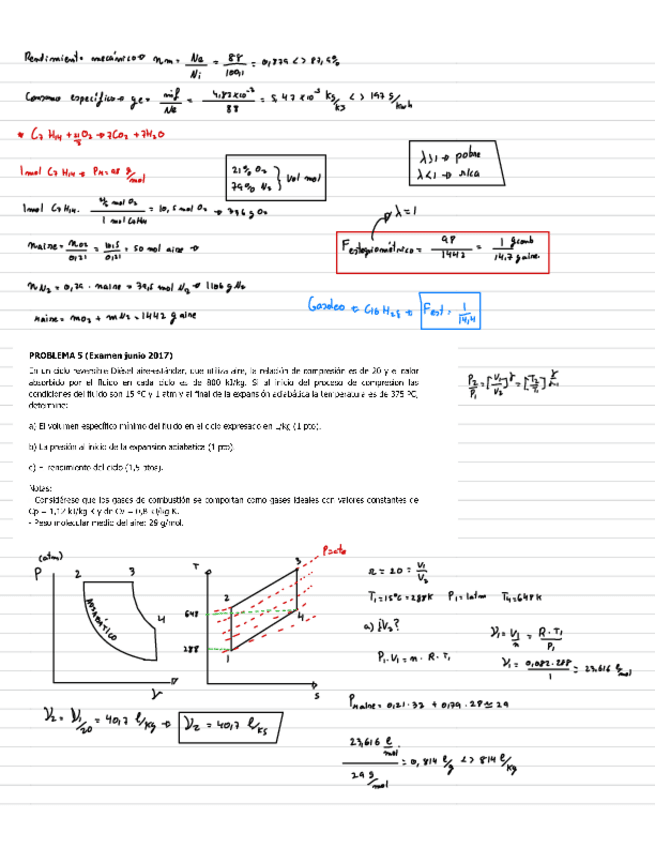 Rendimiento mecánico → ηm = Na/Ni = 88/100,1 = 0,879 <> 87,9%
Consumo específico → ge = ṁf/Na = 4,82x10⁻³/88 = 5,47x10⁻⁵ kg/kJ <> 197 g/kwh
* C7 H14 + 21/2 O2 → 7CO2 + 7H2O
1 mol C7 H14 → PM = 98 g/mol
21% O2
79% N2 } Vol mol
λ>1 → pobre
λ<1 → rica
1mol C7H14 · = 10,5 mol O2 → 336 g O2
λ=1
naire = nO2/0,21 = 10,5/0,21 = 50 mol aire →
Festequiométrico = 98/1442 = 1 gcomb/14,7 gaire
nN2 = 0,79 · naire = 39,5 mol N2 → 1106 g N2
Gasoleo → C16 H28 → Fest = 1/14,4
maire = mO2 + mN2 = 1442 g aire
PROBLEMA 5 (Examen junio 2017)
En un ciclo reversible Diésel aire-estándar, que utiliza aire, la relación de compresión es de 20 y el calor
absorbido por el fluido en cada ciclo es de 800 kJ/kg. Si al inicio del proceso de compresión las
condiciones del fluido son 15 ºC y 1 atm y al final de la expansión adiabática la temperatura es de 375 ºC,
determine:
P2/P1 = [V1/V2]^γ = [T2/T1]^γ/γ-1
a) El volumen específico mínimo del fluido en el ciclo expresado en L/kg (1 pto).
b) La presión al inicio de la expansión adiabática (1 pto).
c) El rendimiento del ciclo (1,5 ptos).
Notas:
- Considérese que los gases de combustión se comportan como gases ideales con valores constantes de
Cp = 1,12 kJ/kg K y de Cv = 0,8 kJ/kg K.
- Peso molecular medio del aire: 29 g/mol.
(atm)
P
2
3
4
1
ADIABÁTICO
V
T
3
2
4
1
648
288
S
P=cte
r = 20 = V1/V2
T1 = 15°C = 288K P1 = 1atm T4 = 648 K
a) ¿V2?
V1 = V1/n = R·T1/P1
P1·V1 = n·R·T1
V1 = 0,082·288/1 = 23,616 l/mol
PMaire = 0,21·32 + 0,79·28 ≃ 29
V2 = V1/20 = 40,7 l/kg → V2 = 40,7 l/kg
23,616 l/mol / 29 g/mol = 0,814 l/g <> 814 l/kg